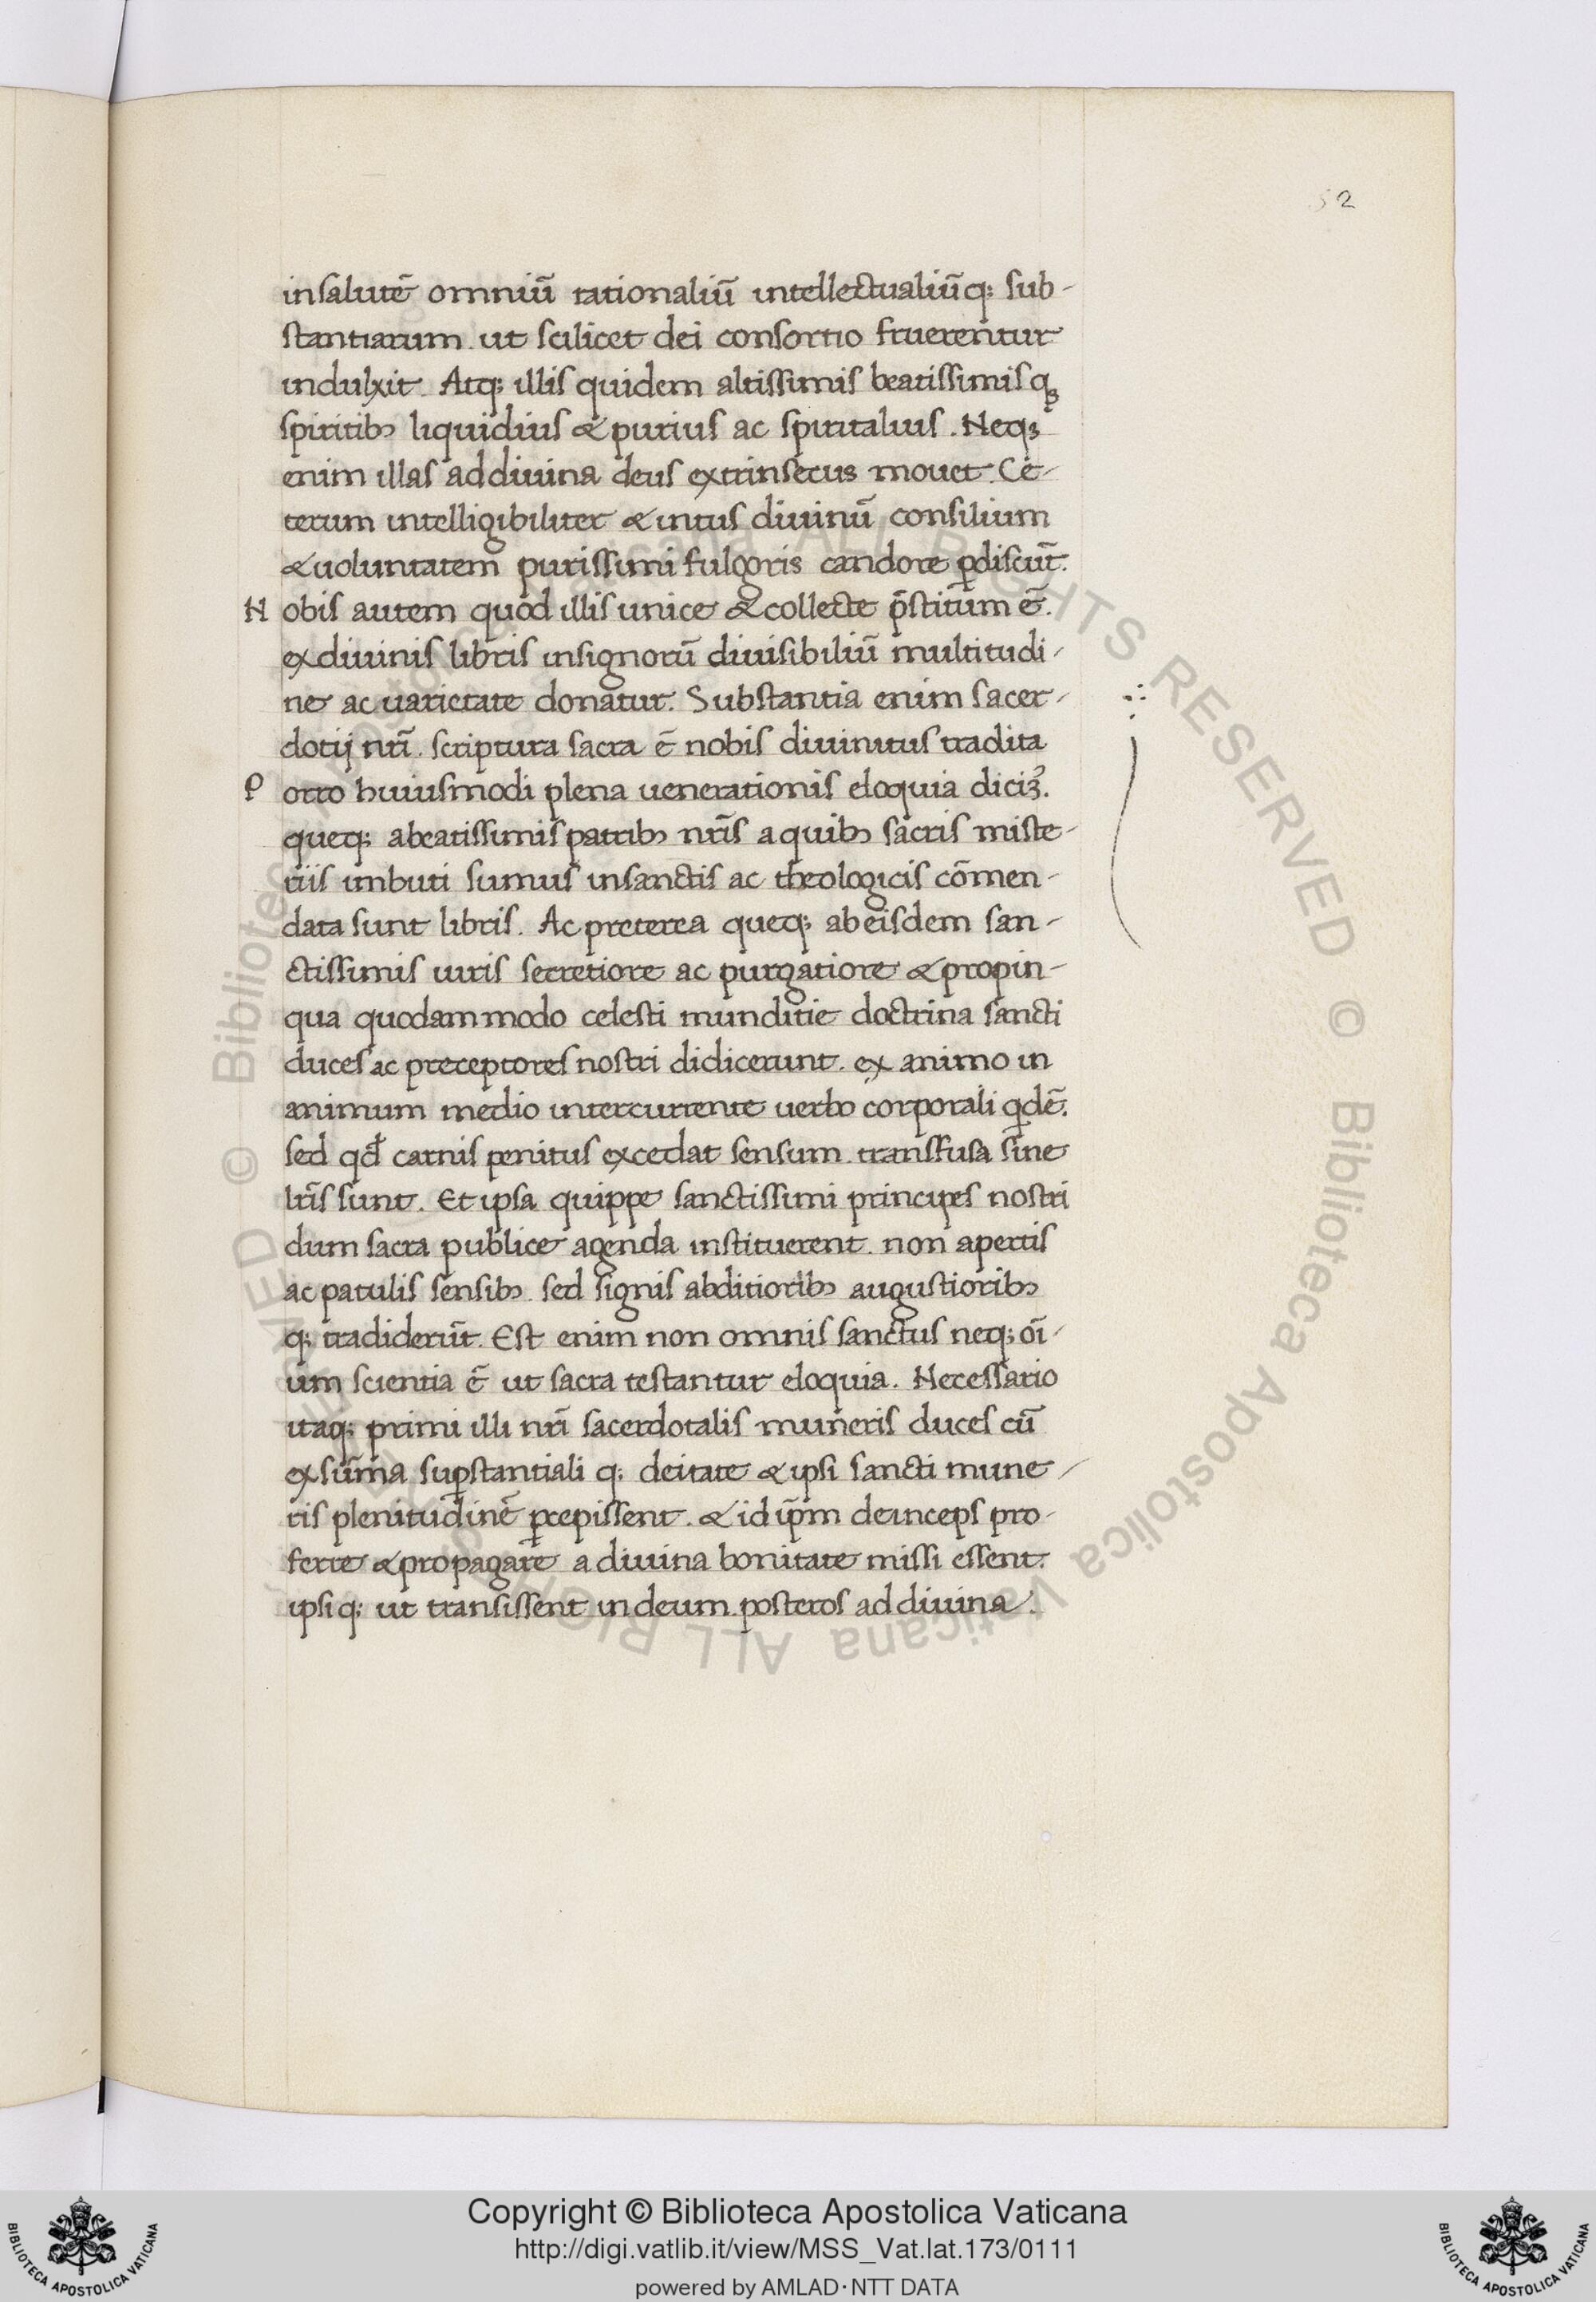 52
insalutē omniū rationaliū intellectualiūq; sub-
stantiarum. ut scilicet dei consortio fruerentur
indulxit. Atq; illis quidem altissimis beatissimisq;
spiritibꝫ liquidius & purius ac spiritalius. Neqꝫ
enim illas addiuina deus extrinsecus mouet. Ce-
terum intelligibiliter & intus diuinū consilium
& uoluntatem purissimi fulgoris candore ꝑdiscūt.
Nobis autem quod illis unice & collecte p̄stitum ē.
exdiuinis libris insignorū diuisibiliū multitudi-
ne ac uarietate donatur. Substantia enim sacer-
dotij nr̄i. scriptura sacra ē nobis diuinitus tradita
Porro huiusmodi plena uenerationis eloquia diciꝫ.
queq; abeatissimis patribꝫ nr̄is a quibꝫ sacris miste-
riis imbuti sumus insanctis ac theologicis cōmen-
data sunt libris. Ac preterea queq; ab eisdem san-
ctissimis uiris secretiore ac purgatiore & propin-
qua quodammodo celesti munditie doctrina sancti
duces ac preceptores nostri didicerunt. ex animo in
animum medio intercurrente uerbo corporali qdē.
sed qđ carnis penitus excedat sensum. transfusa sine
lr̄is sunt. Et ipsa quippe sanctissimi principes nostri
dum sacra publice agenda instituerent. non apertis
ac patulis sensibꝫ. sed signis abditioribꝫ augustioribꝫ
q; tradiderūt. Est enim non omnis sanctus neq; oī-
um scientia ē ut sacra testantur eloquia. Necessario
itaq; primi illi nr̄i sacerdotalis muneris duces cū
exsūma suꝑstantiali q; deitate & ipsi sancti mune-
ris plenitudinē ꝑcepissent. & id ip̄m deinceps pro-
ferre & propagare a diuina bonitate missi essent.
ipsi q; ut transissent in deum. posteros ad diuina.
© Biblioteca Apostolica Vaticana ALL RIGHTS RESERVED © Biblioteca Apostolica Vaticana ALL RIGHTS RESERVED
BIBLIOTECA APOSTOLICA VATICANA
Copyright © Biblioteca Apostolica Vaticana
http://digi.vatlib.it/view/MSS_Vat.lat.173/0111
powered by AMLAD·NTT DATA
BIBLIOTECA APOSTOLICA VATICANA